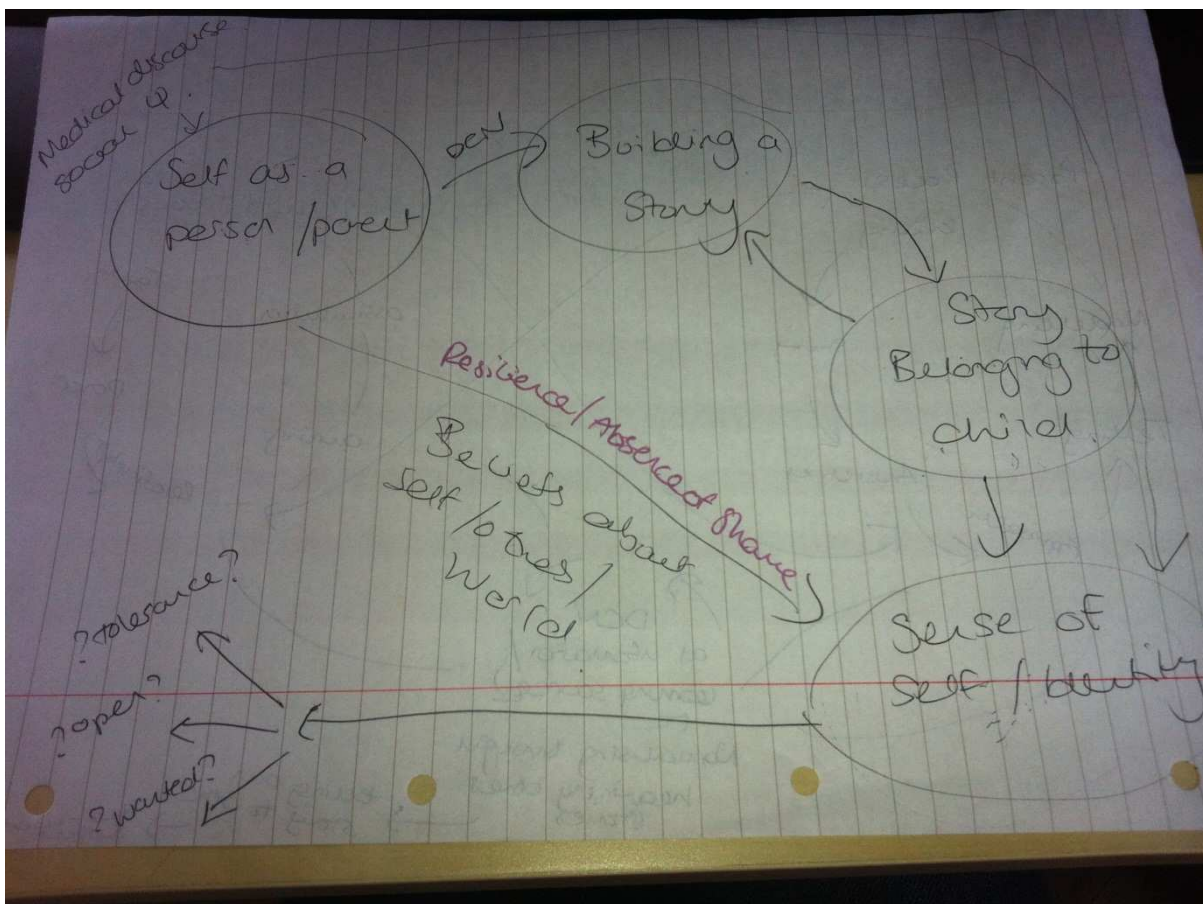 Medical discourse
social
Self as a
person / parent
DCN
Building a
Story
Story
Belonging to
child.
Resilience / Absence of Shame
Beliefs about
Self / others /
World
Sense of
Self / Identity
? tolerance?
? open?
? wanted?